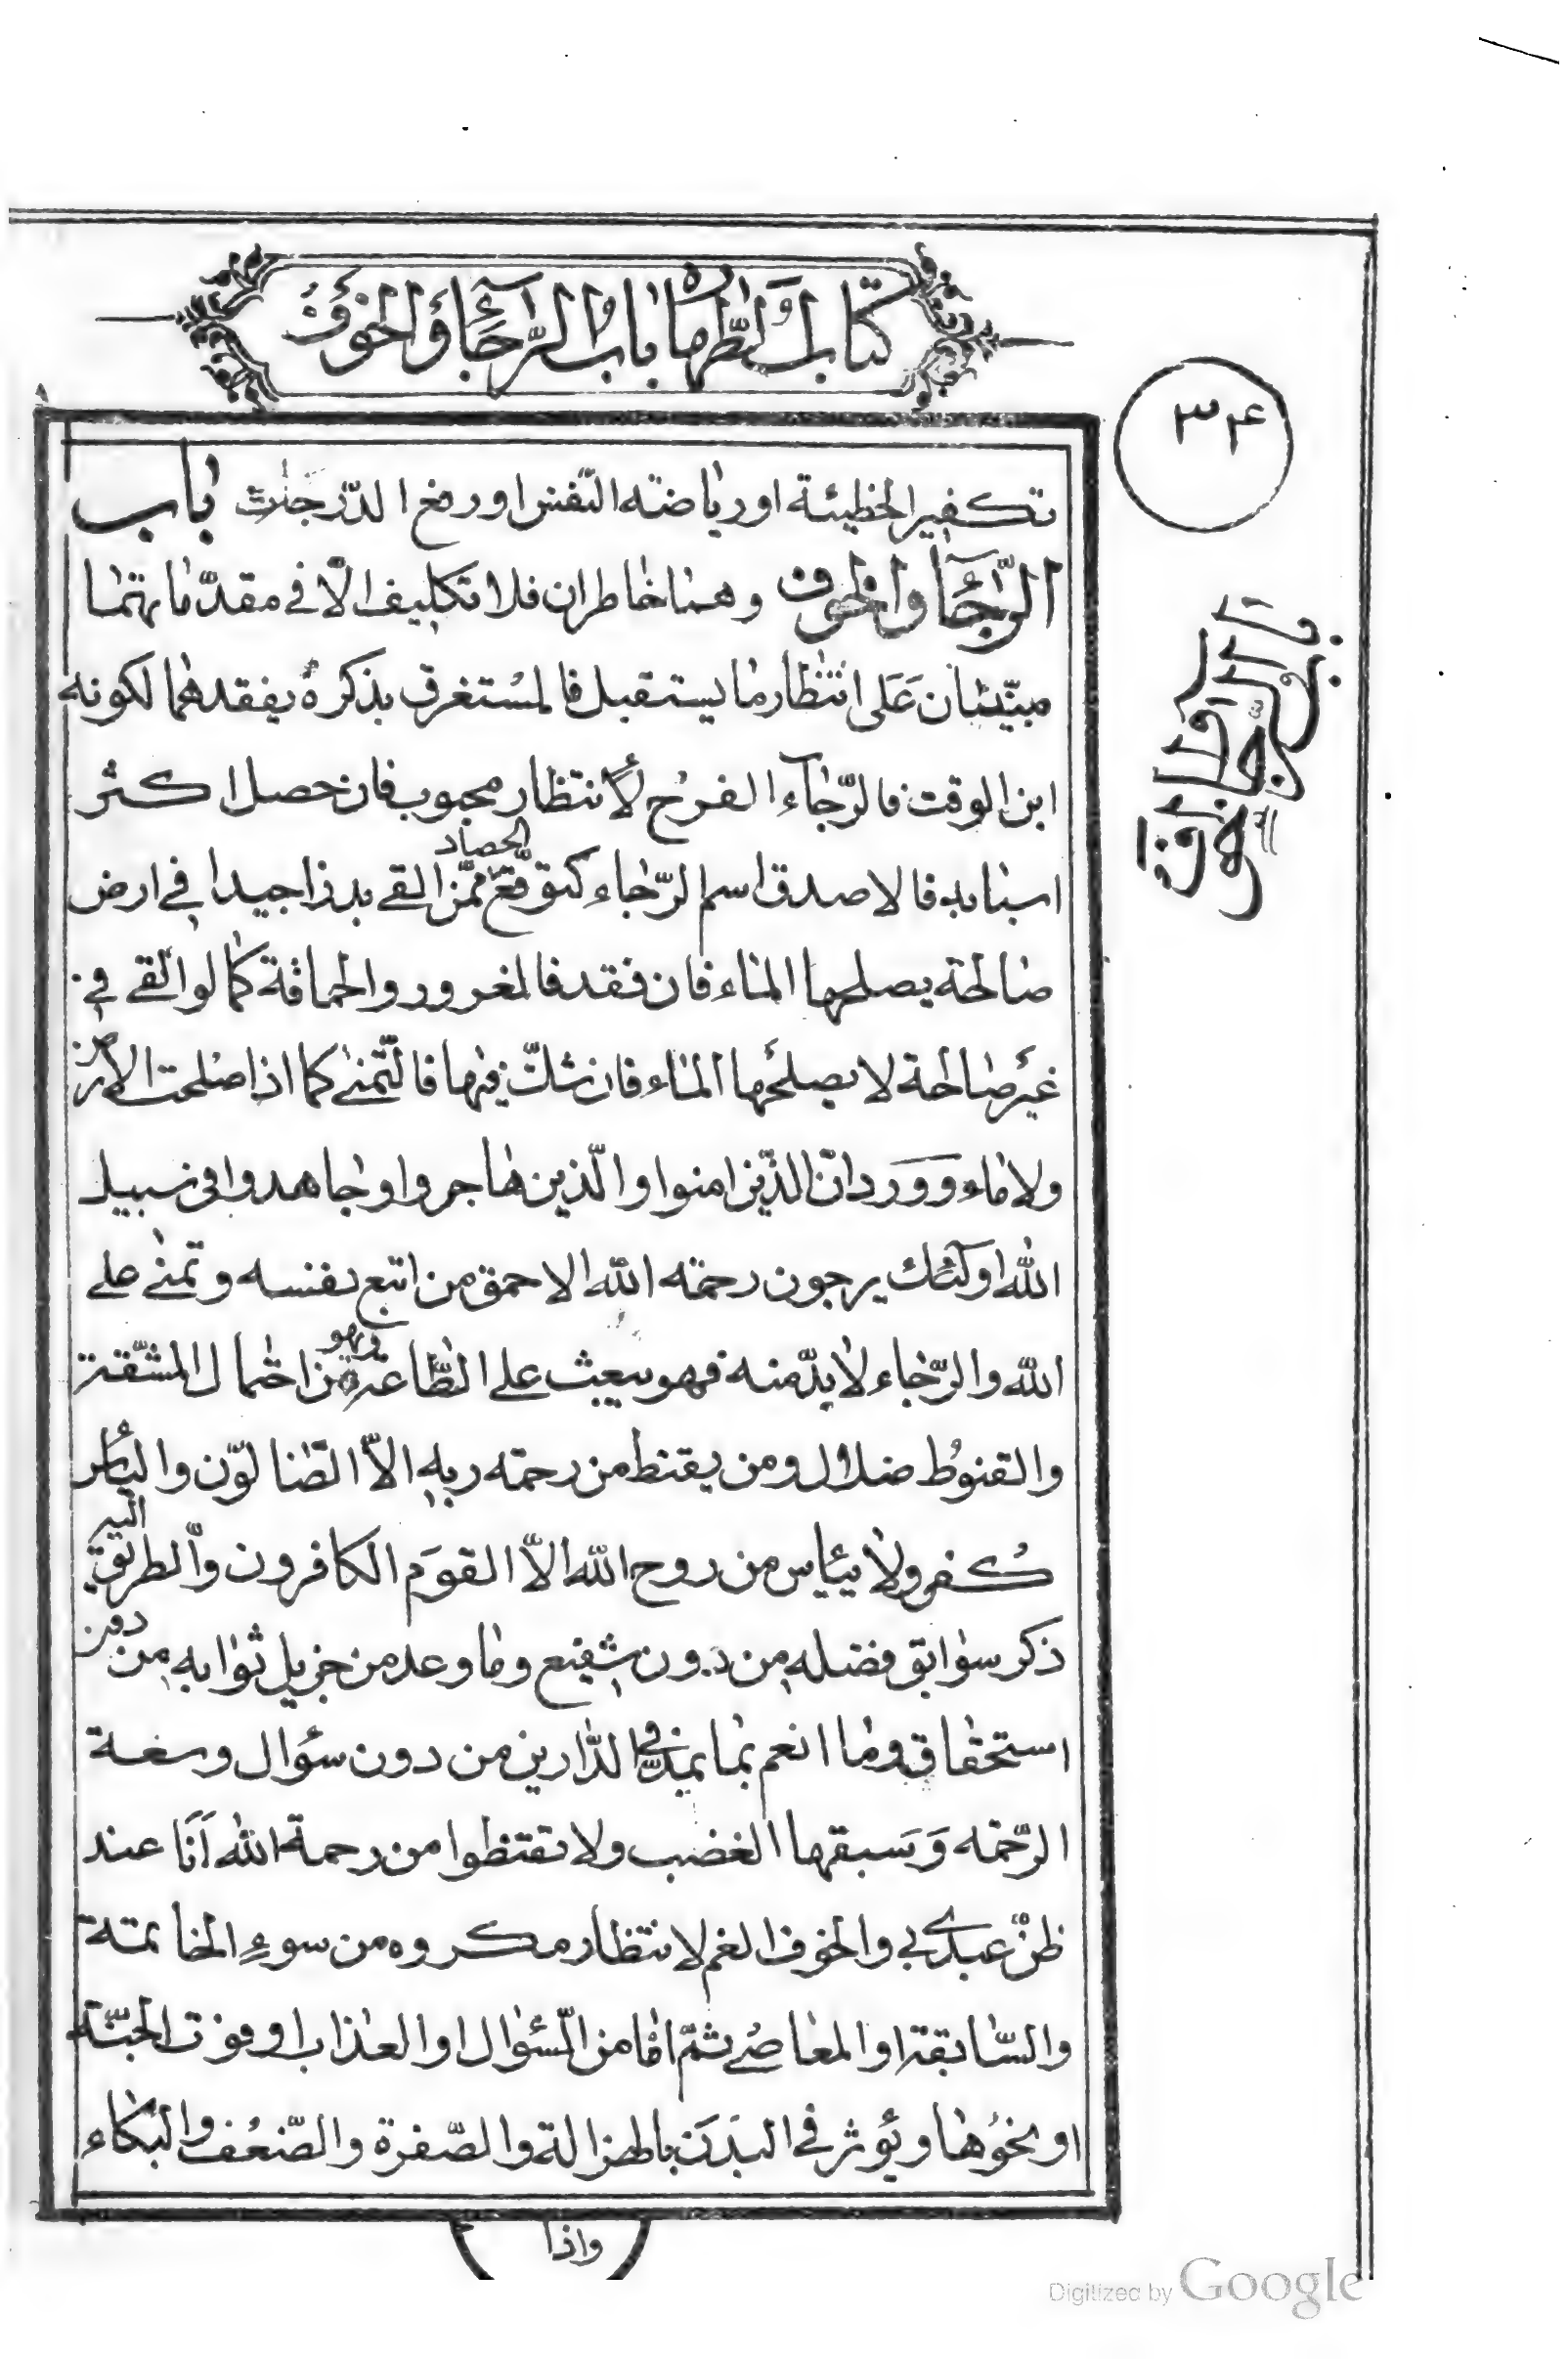 كتاب الطهارة باب الرّجآء والخوف
٣٤
باب الرّجآء والخوف
تكفير الخطيئة او رياضته النّفس او رفع الدّرجات باب
الرّجآء والخوف وهما خاطران فلا تكليف الّا في مقدّماتهما
مبنيّان عَلى انتظار ما يستقبل فالمستغرق بذكره يفقدهما لكونه
ابن الوقت فالرّجآء الفرح لانتظار محبوب فان حصل اكثر
اسبابه فالاصدق اسم الرّجاء كتوقّع الحصاد ممّن القى بذرا جيدا في ارض
صالحة يصلحها الماء فان فقد فالمغرور والحماقة كما لو القى في
غير صالحة لا يصلحها الماء فان شكّ فيها فالتّمنى كما اذا صلحت الارض
ولا ماء وَوَرد انّ الذين امنوا والّذين هاجروا وجاهدوا في سبيل
الله اولئك يرجون رحمته الله الاحمق من اتبع نفسه وتمنى على
الله والرّجاء لا بدّ منه فهو يبعث على الطّاعة ويهون احتمال المشقّة
والقنوط ضلال ومن يقنط من رحمته ربه الّا الضّالّون والياس
كفر ولا ييأس من روح الله الّا القوم الكافرون والطريق اليه
ذكر سوابق فضله من دون شفيع وما وعد من جزيل ثوابه من دون
استحقاق وما انعم بما يمدّ في الدّارين من دون سؤال وسعة
الرّحمه وَسبقها الغضب ولا تقنطوا من رحمة الله اَنَا عند
ظنّ عبدي بي والخوف الغم لانتظار مكروه من سوء الخاتمة
والسّابقة او المعاصي ثمّ امّا من السّؤال او العذاب او فوت الجنّة
او نحوها ويؤثر في البدن بالهزالة والصّفرة والضّعف والبكاء
واذا
Digitized by Google